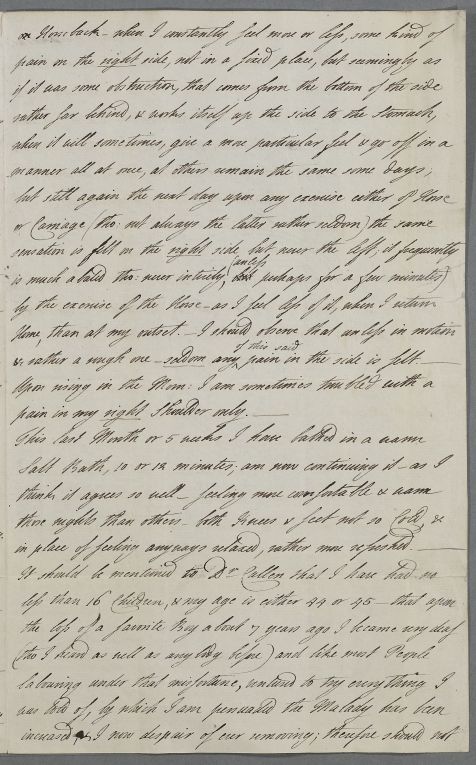 on Horseback - when I constantly feel more or less, some kind of
pain on the right side, not in a fixd place, but seemingly as
if it was some obstruction, that comes from the bottom of the side
rather far behind, & works itself up the side to the Stomach,
when it will sometimes, give a more particular feel & go off in a
manner all at once, at others remain the same some days,
but still again the next day upon any exercise either of Horse
or Carriage (tho: not always the latter rather seldom) the same
sensation is felt on the right side, but never the left, it frequently
is much abated tho: never intirely, unless perhaps for a few minutes)
by the exercise of the Horse - as I feel less of it, when I return
Home, than at my outset. - I should observe that unless in motion
& rather a rough one - seldom any of this said pain in the side is felt
Upon rising in the Morn: I am sometimes troubled with a
pain in my right Shoulder only. -
This last Month or 5 weeks I have bathed in a warm
Salt Bath, 10 or 12 minutes, am now continuing it - as I
think it agrees so well - feeling more comfortable & warm
those nights than others - both Knees & feet not so Cold, &
in place of feeling anyways relaxed, rather more refreshed. -
It should be mentioned to Dr Cullen that I have had no
less than 16 Children, & my age is either 44 or 45 - that upon
the loss of a favorite Boy about 7 years ago I became very deaf
(tho I heard as well as any body before) and like most People
labouring under that misfortune, ventured to try every thing I
was told of, by which I am persuaded the Malady has been
increased I now despair of ever removing; therefore should not